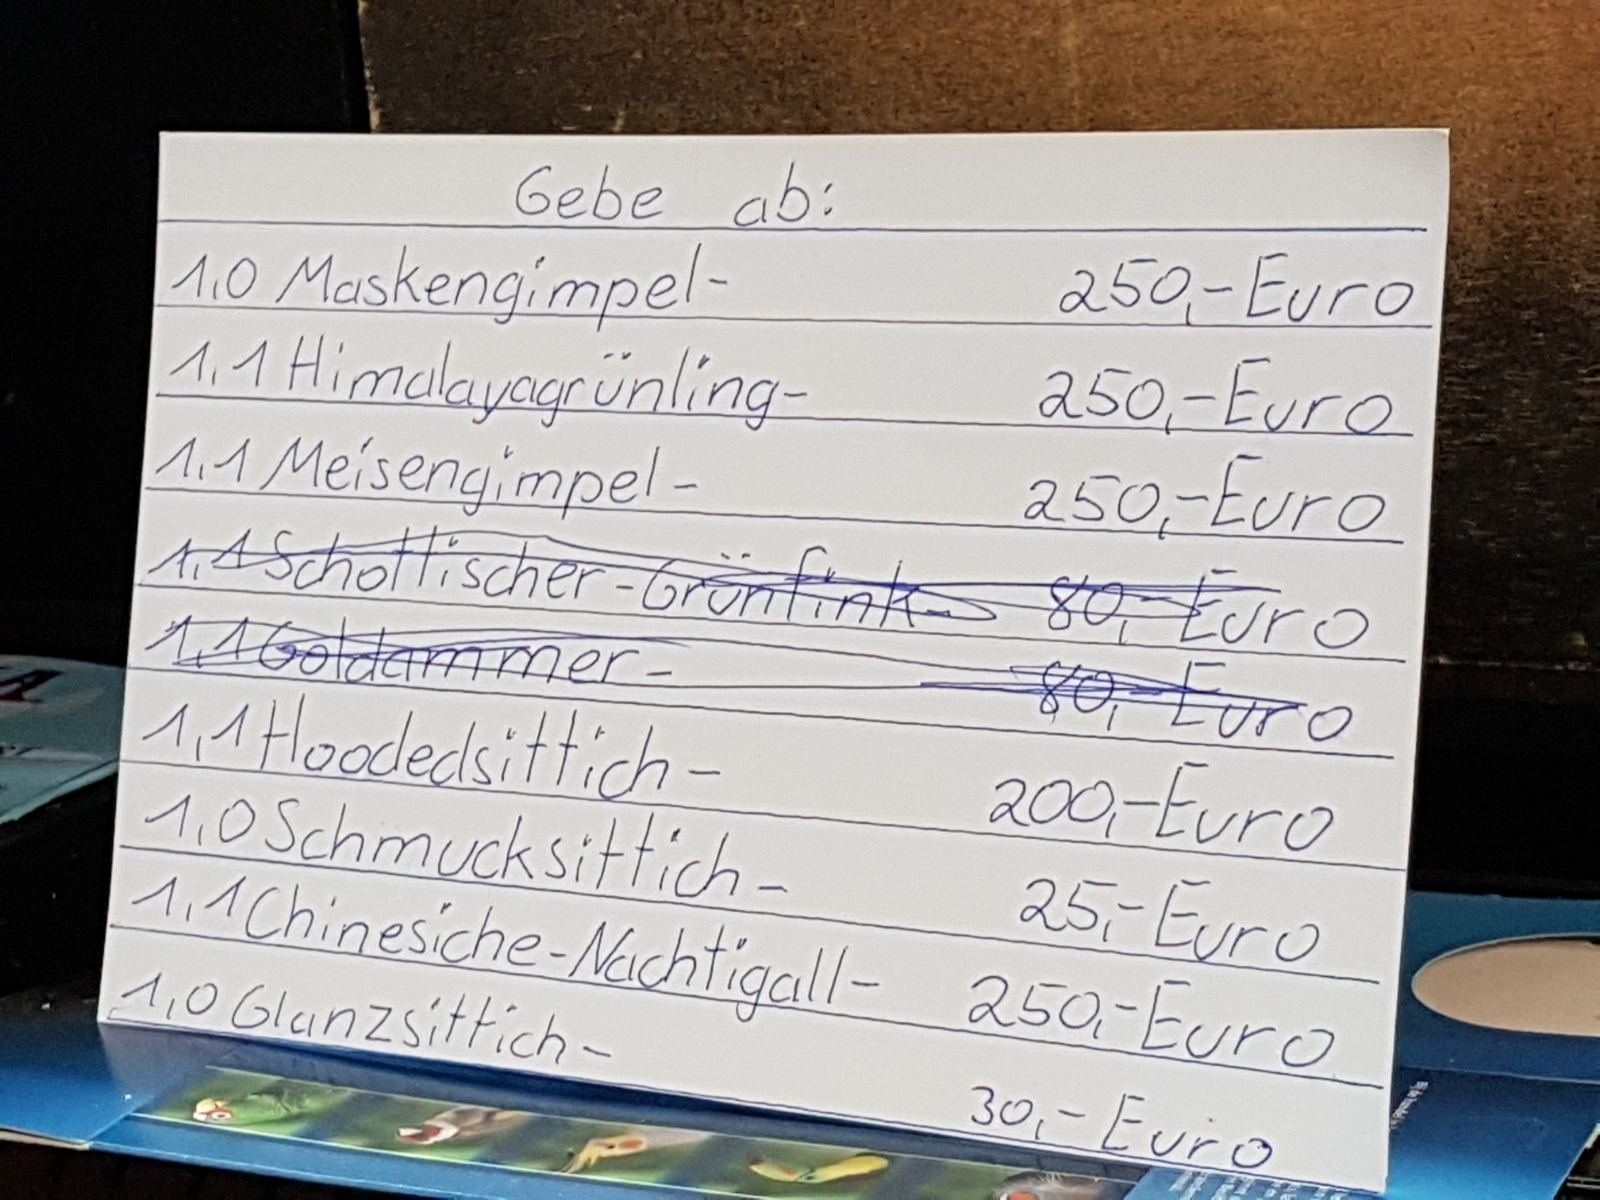 Gebe ab:
1,0 Maskengimpel- 250,- Euro
1,1 Himalayagrünling- 250,- Euro
1,1 Meisengimpel- 250,- Euro
1,1 Schottischer-Grünfink- 80,- Euro
1,1 Goldammer- 80,- Euro
1,1 Hoodedsittich- 200,- Euro
1,0 Schmucksittich- 25,- Euro
1,1 Chinesiche-Nachtigall- 250,- Euro
1,0 Glanzsittich- 30,- Euro